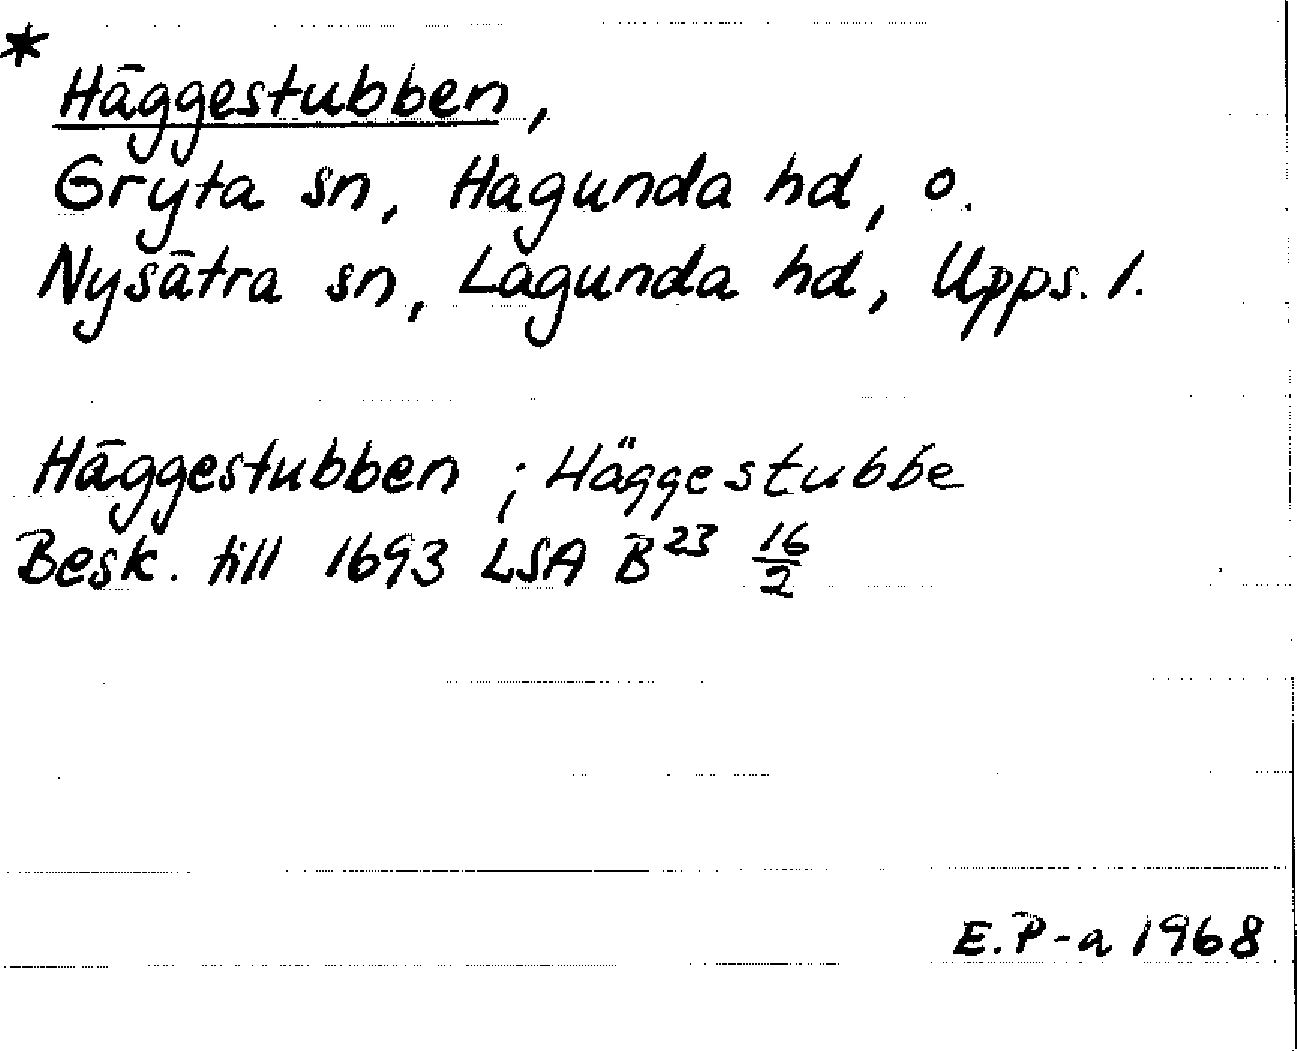 * Häggestubben,
Gryta sn, Hagunda hd, o.
Nysätra sn, Lagunda hd, Upps. l.
Häggestubben ; Häggestubbe
Besk. till 1693 LSA B²³ 16/2
E. P-a 1968